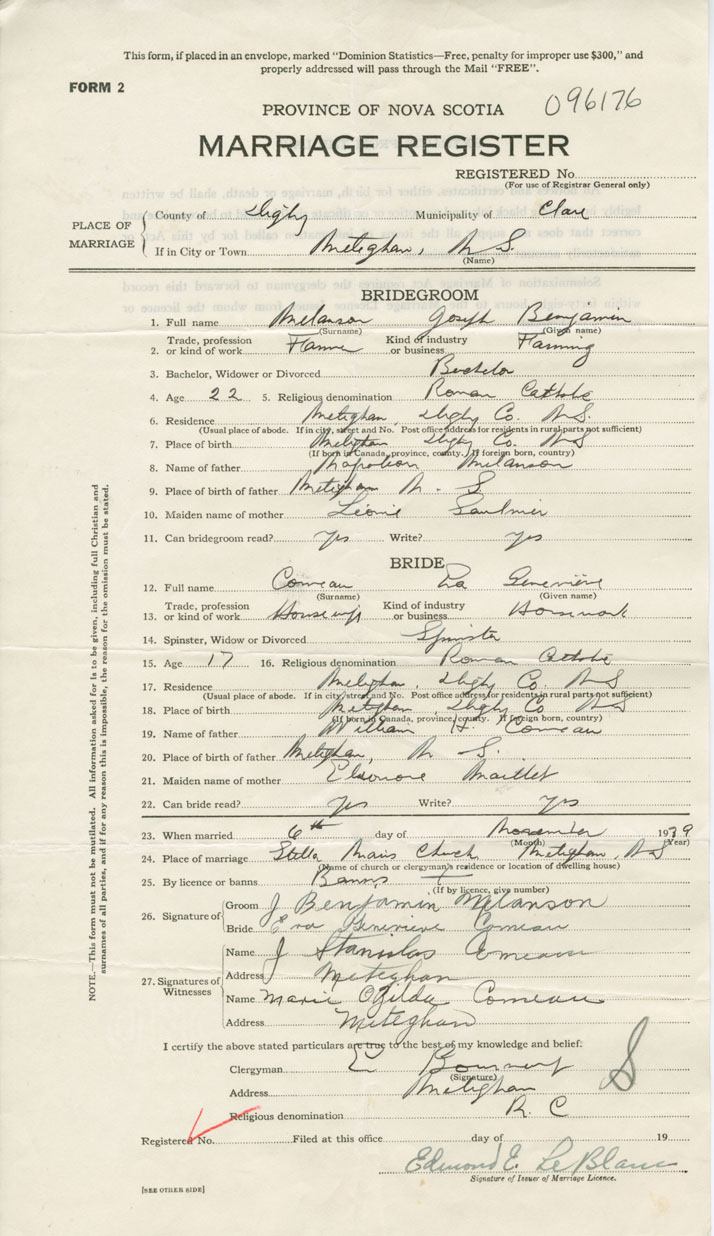 This form, if placed in an envelope, marked "Dominion Statistics—Free, penalty for improper use $300," and
properly addressed will pass through the Mail "FREE".
FORM 2
096176
PROVINCE OF NOVA SCOTIA
MARRIAGE REGISTER
REGISTERED No.
(For use of Registrar General only)
PLACE OF MARRIAGE
County of Digby Municipality of Clare
If in City or Town Meteghan, N S.
(Name)
BRIDEGROOM
1. Full name Melanson Joseph Benjamin
(Surname) (Given name)
2. Trade, profession or kind of work Farmer Kind of industry or business Farming
3. Bachelor, Widower or Divorced Bachelor
4. Age 22 5. Religious denomination Roman Catholic
6. Residence Meteghan, Digby Co. N.S.
(Usual place of abode. If in city, street and No. Post office address for residents in rural parts not sufficient)
7. Place of birth Meteghan Digby Co. N S
(If born in Canada, province, county. If foreign born, country)
8. Name of father Napoleon Melanson
9. Place of birth of father Meteghan N. S
10. Maiden name of mother Léonie Saulnier
11. Can bridegroom read? Yes Write? Yes
BRIDE
12. Full name Comeau Genevière
(Surname) (Given name)
13. Trade, profession or kind of work Kind of industry or business Housework
14. Spinster, Widow or Divorced Spinster
15. Age 17 16. Religious denomination Roman Catholic
17. Residence Meteghan, Digby Co. N S
(Usual place of abode. If in city, street and No. Post office address for residents in rural parts not sufficient)
18. Place of birth Meteghan, Digby Co N S
(If born in Canada, province, county. If foreign born, country)
19. Name of father William H. Comeau
20. Place of birth of father Meteghan, N S.
21. Maiden name of mother Eleonore Maillet
22. Can bride read? Yes Write? Yes
23. When married 6th day of November 1939
(Month) (Year)
24. Place of marriage Stella Maris Church Meteghan, N S
(Name of church or clergyman's residence or location of dwelling house)
25. By licence or banns Banns
(If by licence, give number)
26. Signature of
Groom J Benjamin Melanson
Bride Eva Genevieve Comeau
27. Signatures of Witnesses
Name J Stanislas Comeau
Address Meteghan
Name Marie Ozilda Comeau
Address Meteghan
I certify the above stated particulars are true to the best of my knowledge and belief:
Clergyman E
(Signature)
S
Address Meteghan
Religious denomination R. C
Registered No. Filed at this office day of 19
Edmond E. LeBlanc
Signature of Issuer of Marriage Licence.
[SEE OTHER SIDE]
NOTE.—This form must not be mutilated. All information asked for is to be given, including full Christian and
surnames of all parties, and if for any reason this is impossible, the reason for the omission must be stated.